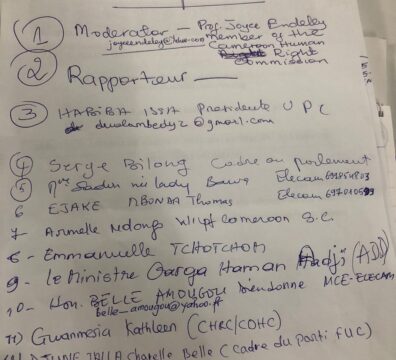 1 Moderator – Prof. Joyce Endeley
joyceendeley@yahoo.com member of the
Cameroon Human
Right
Commission
2 Rapporteur —
3 HABIBA ISSA Presidente UPC
@gmail.com
4 Serge Bilong Cadre au parlement
5 Mme Sadou née lady Bawa Elecam
6 EJAKE MBONDA Thomas Elecam
7- Armelle Ndongo Wilpf Cameroon
8- Emmanuelle TCHOTCHOM
9- le Ministre Garga Haman Hadji (ADD)
10- Hon. BELLE AMOUGOU Dieudonne MCE-ELECAM
belle-amougou@yahoo.fr
11) Gwanmesia Kathleen (CHRC/CDHC)
Belle (cadre du parti FUC)